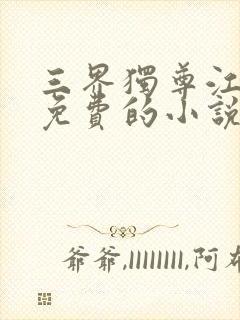 三界獨尊江
免費的小說
爺爺,llllllll,阿布